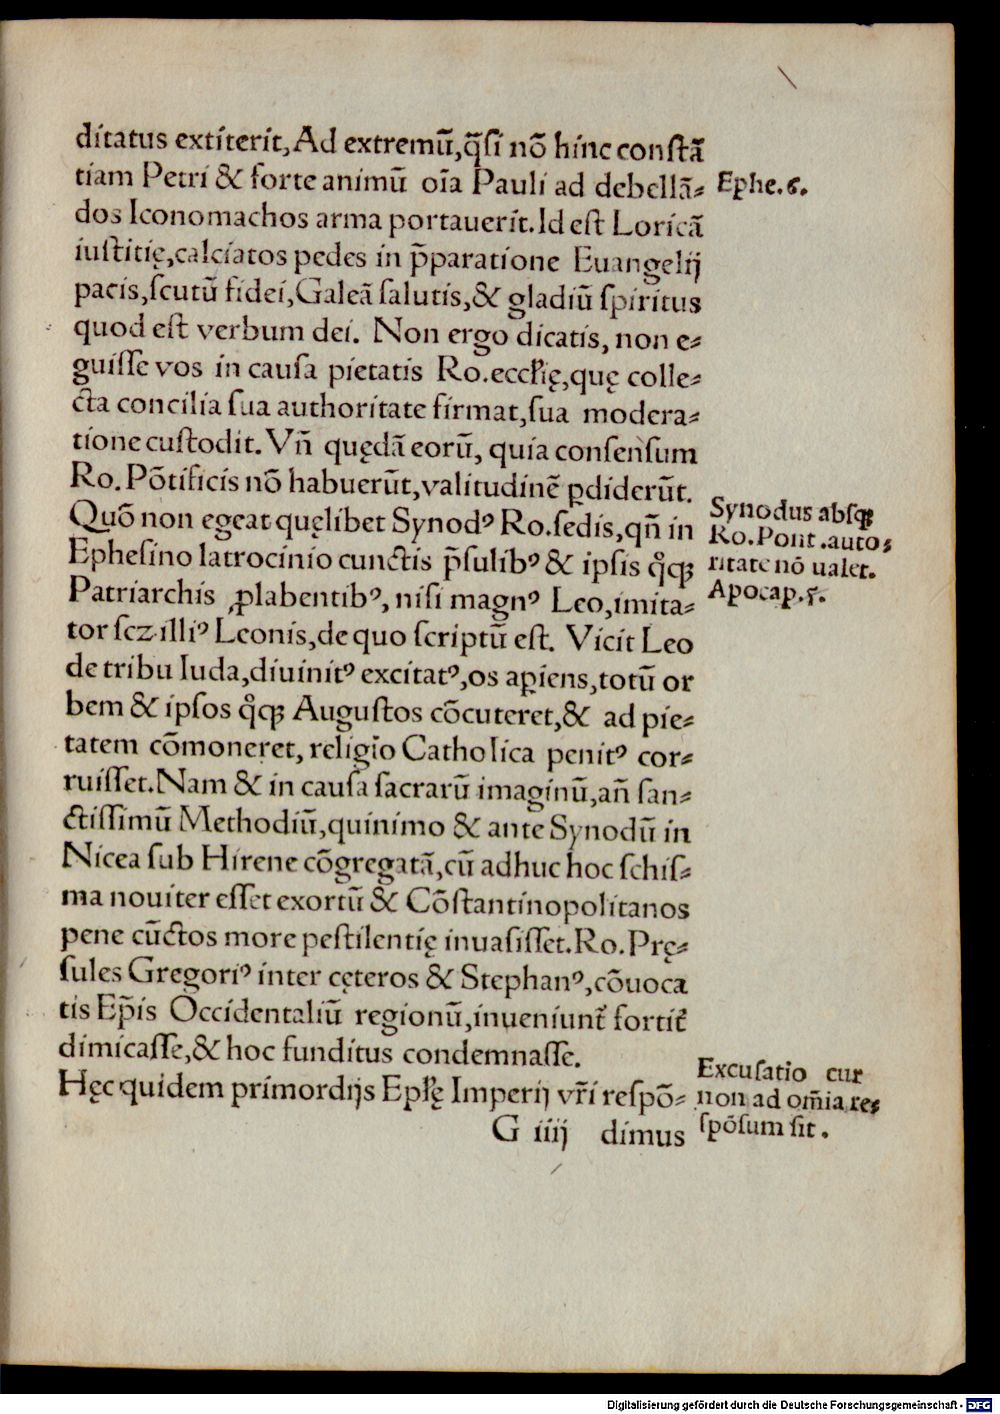 ditatus extiterit, Ad extremū, q̄ſi nō hinc conſtā
tiam Petri & forte animū oīa Pauli ad debellā⸗
dos Iconomachos arma portauerit. Id eſt Loricā
iuſtitię, calciatos pedes in p̄paratione Euangelij
pacis, ſcutū fidei, Galeā ſalutis, & gladiū ſpiritus
quod eſt verbum dei. Non ergo dicatis, non e⸗
guiſſe vos in cauſa pietatis Ro. eccl̄ię, quę colle⸗
cta concilia ſua authoritate firmat, ſua modera⸗
tione cuſtodit. Vn̄ quędā eorū, quia conſenſum
Ro. Pōtificis nō habuerūt, valitudinē ꝑdiderūt.
Quō non egeat quęlibet Synodꝰ Ro. ſedis, qn̄ in
Epheſino latrocinio cunctis p̄ſulibꝰ & ipſis qͦꝗꝫ
Patriarchis ꝓlabentibꝰ, niſi magnꝰ Leo, imita⸗
tor ſcꝫ illiꝰ Leonis, de quo ſcriptū eſt. Vicit Leo
de tribu Iuda, diuinitꝰ excitatꝰ, os aꝑiens, totū or
bem & ipſos qͦꝗꝫ Auguſtos cōcuteret, & ad pie⸗
tatem cōmoneret, religio Catholica penitꝰ cor⸗
ruiſſet. Nam & in cauſa ſacrarū imaginū, an̄ ſan⸗
ctiſſimū Methodiū, quinimo & ante Synodū in
Nicea ſub Hirene cōgregatā, cū adhuc hoc ſchiſ⸗
ma nouiter eſſet exortū & Cōſtantinopolitanos
pene cūctos more peſtilentię inuaſiſſet. Ro. Prę⸗
ſules Gregoriꝰ inter cęteros & Stephanꝰ, cōuoca
tis Ep̄is Occidentaliū regionū, inueniunt̄ fortit̄
dimicaſſe, & hoc funditus condemnaſſe.
Hęc quidem primordijs Epl̄ę Imperij vr̄i reſpō⸗
G iiij dimus
Ephe. 6.
Synodus abſqꝫ
Ro. Pont. auto⸗
ritate nō ualet.
Apocap. 5.
Excuſatio cur
non ad om̄ia re⸗
ſpōſum ſit.
Digitalisierung gefördert durch die Deutsche Forschungsgemeinschaft - DFG